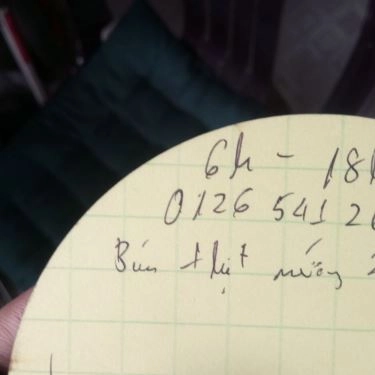 6h - 18h
0126 541 26
Bún thịt nướng